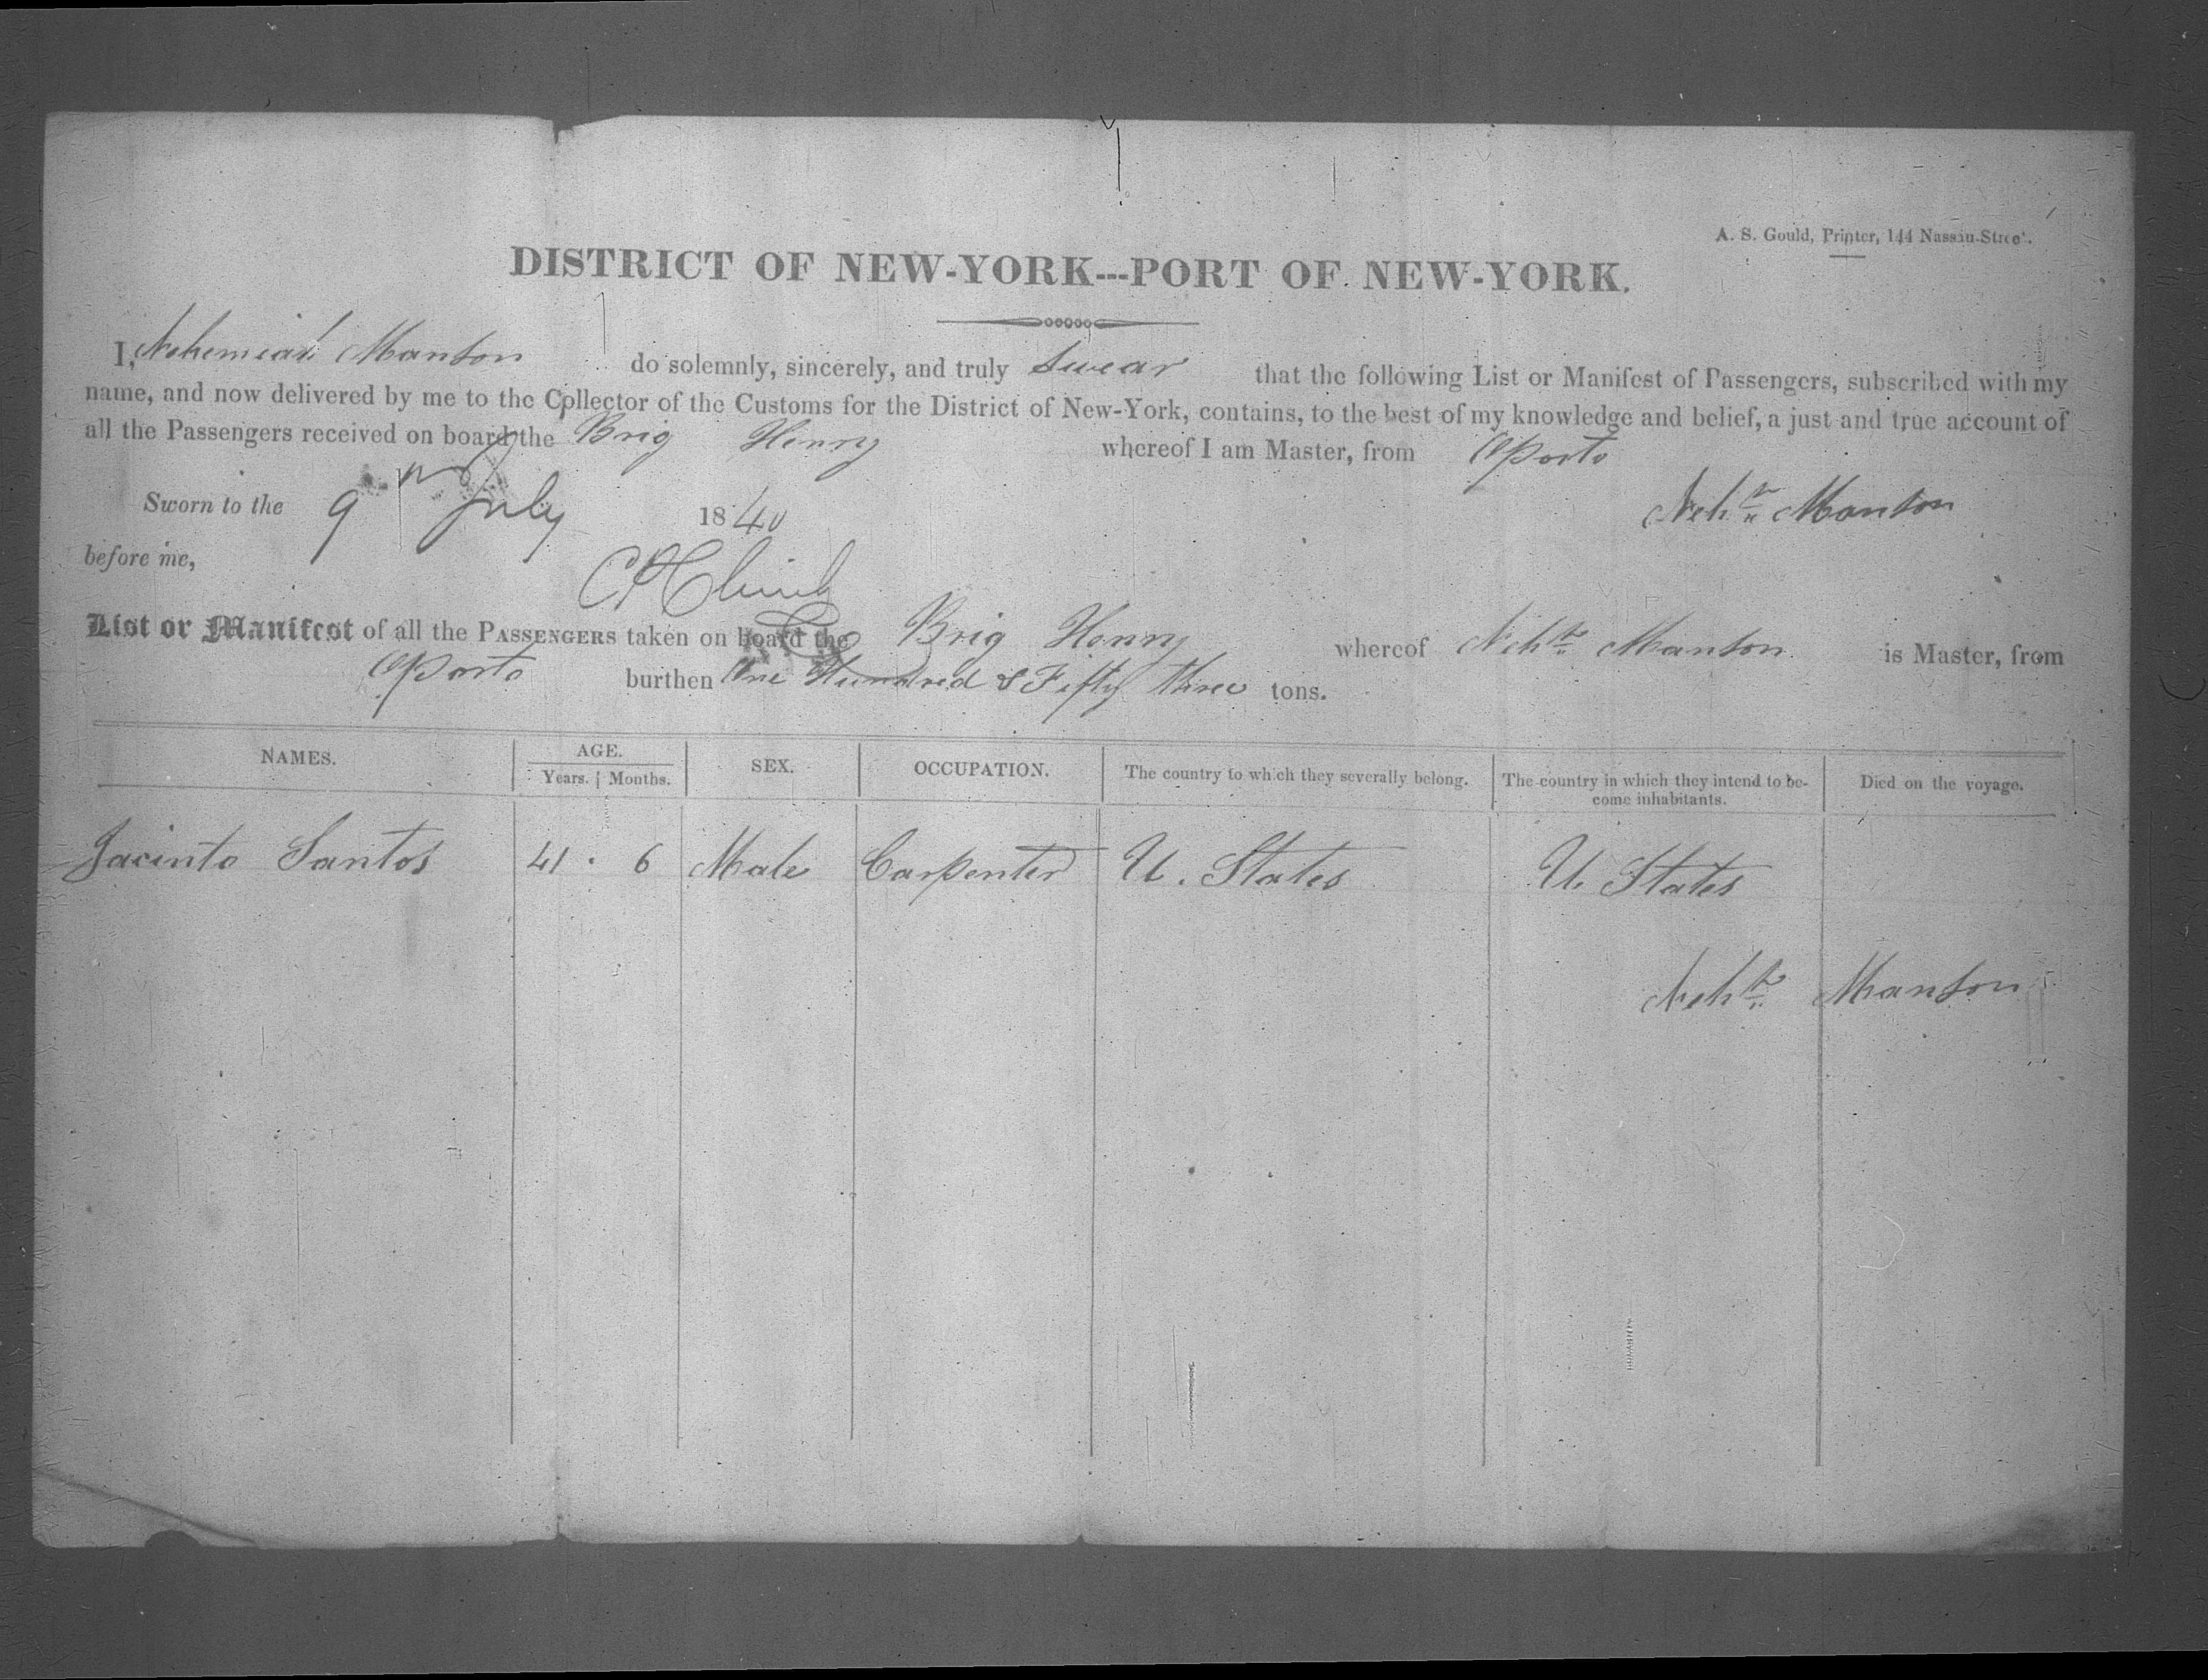 A. S. Gould, Printer, 144 Nassau-Street.
DISTRICT OF NEW-YORK---PORT OF NEW-YORK.
I, Nehemiah Manton do solemnly, sincerely, and truly Swear that the following List or Manifest of Passengers, subscribed with my
name, and now delivered by me to the Collector of the Customs for the District of New-York, contains, to the best of my knowledge and belief, a just and true account of
all the Passengers received on board the Brig Henry whereof I am Master, from Oporto
Sworn to the 9 July 1840
Neh Manton
before me,
List or Manifest of all the PASSENGERS taken on board the Brig Henry whereof Neh Manton is Master, from
Oporto burthen One Hundred & Fifty three tons.
NAMES. AGE. Years. Months. SEX. OCCUPATION. The country to which they severally belong. The country in which they intend to be-come inhabitants. Died on the voyage.
Jacinto Santos 41 . 6 Male Carpenter U. States U. States
Neh Manton